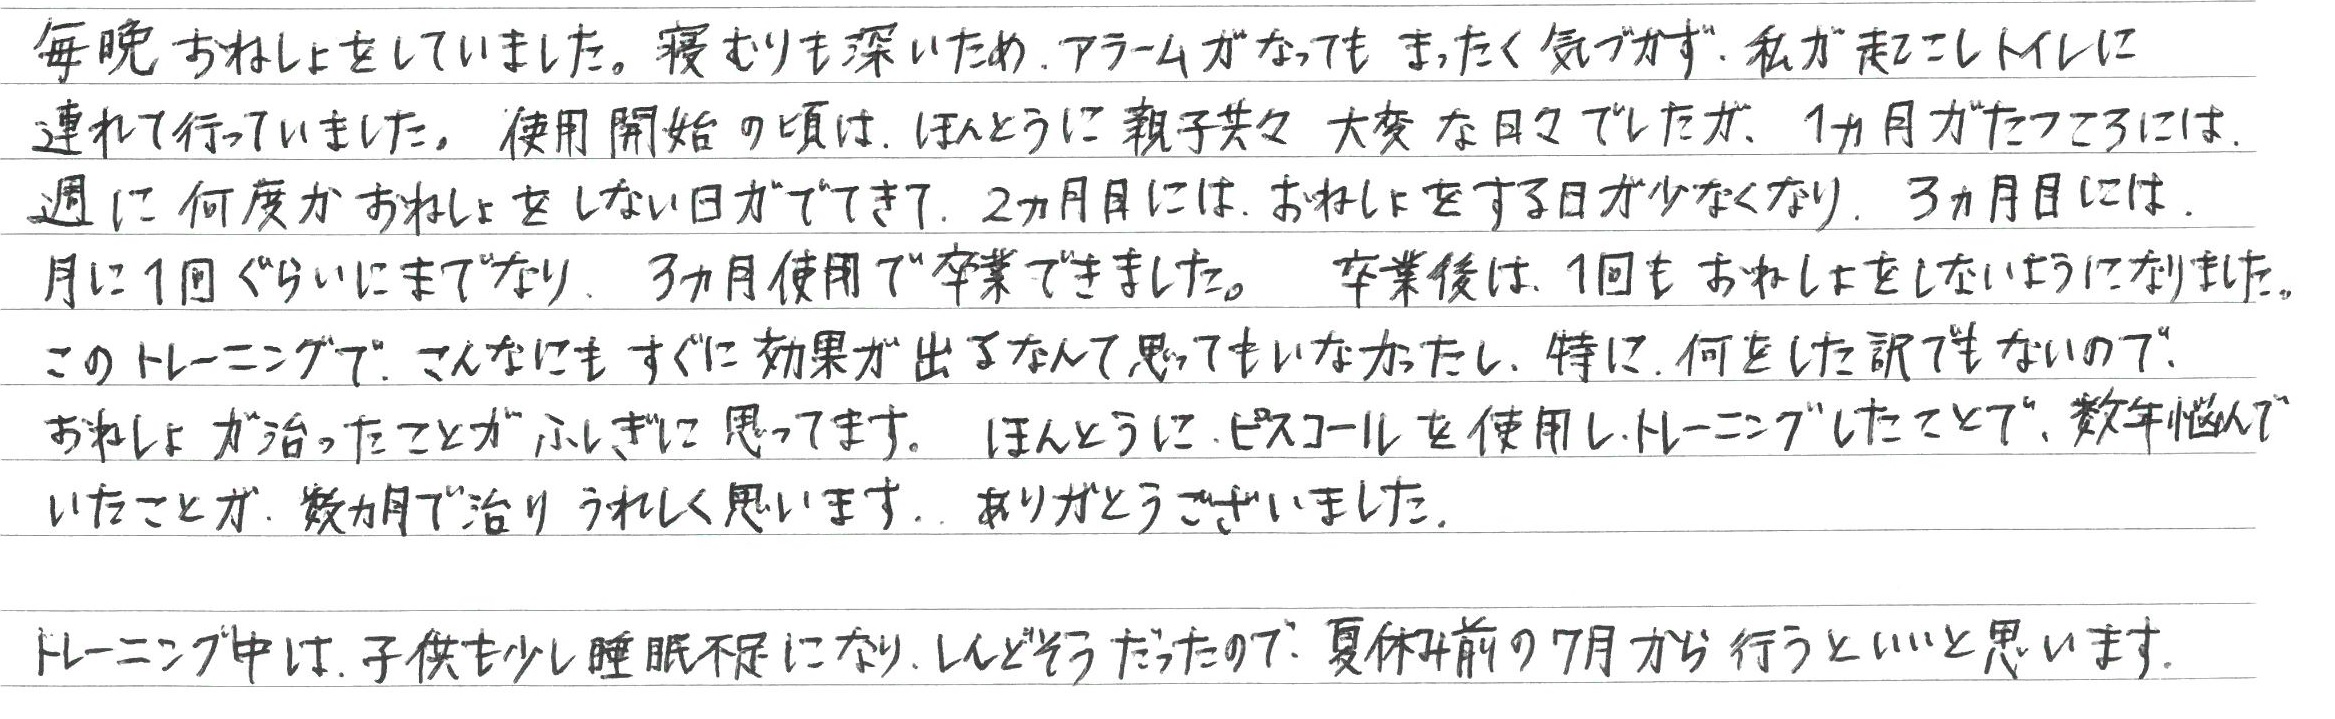 毎晩おねしょをしていました。寝むりも深いため、アラームがなってもまったく気づかず、私が起こしトイレに
連れて行っていました。使用開始の頃は、ほんとうに親子共々大変な日々でしたが、1ヵ月がたつころには、
週に何度かおねしょをしない日がでてきて、2ヵ月目には、おねしょをする日が少なくなり、3ヵ月目には、
月に1回ぐらいにまでなり、3ヵ月使用で卒業できました。卒業後は、1回もおねしょをしないようになりました。
このトレーニングで、こんなにもすぐに効果が出るなんて思ってもいなかったし、特に、何をした訳でもないので、
おねしょが治ったことがふしぎに思ってます。ほんとうに、ピスコールを使用し、トレーニングしたことで、数年悩んで
いたことが、数ヵ月で治りうれしく思います。ありがとうございました。
トレーニング中は、子供も少し睡眠不足になり、しんどそうだったので、夏休み前の7月から行うといいと思います。